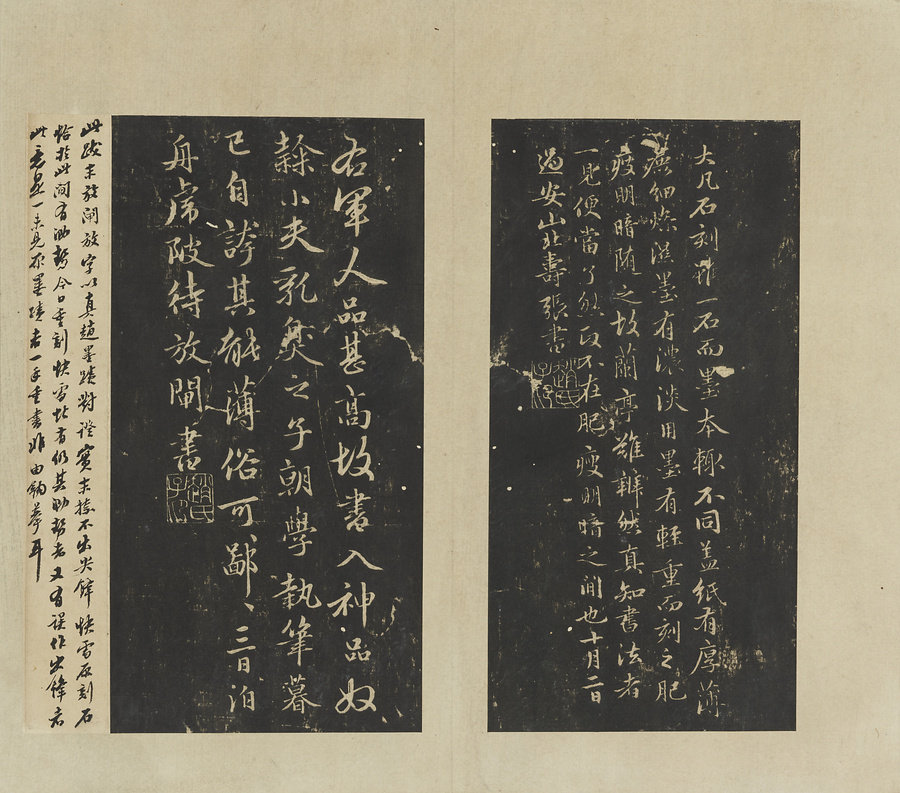 大凡石刻雖一石而墨本輒不同盖紙有厚薄
麄細燥濕墨有濃淡用墨有輕重而刻之肥
瘦明暗随之故蘭亭難辨然真知書法者
一見便當了然政不在肥瘦明暗之間也十月二日
過安山北壽張書
趙氏子昂
右軍人品甚高故書入神品奴
隸小夫乳臭之子朝學執筆暮
已自誇其能薄俗可鄙、三日泊
舟虎陂待放閘書
趙氏子昂
此跋末放閘放字以真趙墨蹟對證實末捺不出尖鋒快雪原刻石
恰於此間有泐勢今日重刻快雪此者仍其泐勢者又有誤作出鋒者
此意是一未見原墨蹟者一手重書非由鉤摹耳